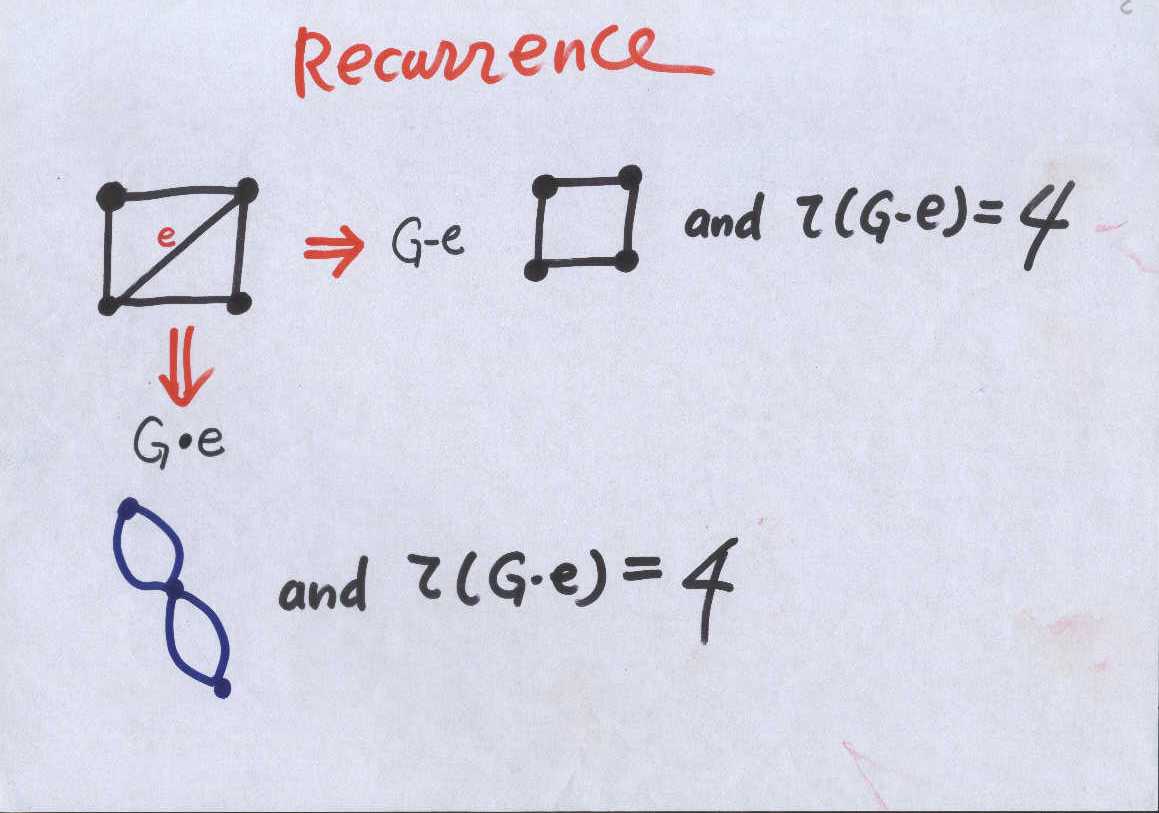 Recurrence
e
G-e
and τ(G-e)=4
G•e
and τ(G•e)=4